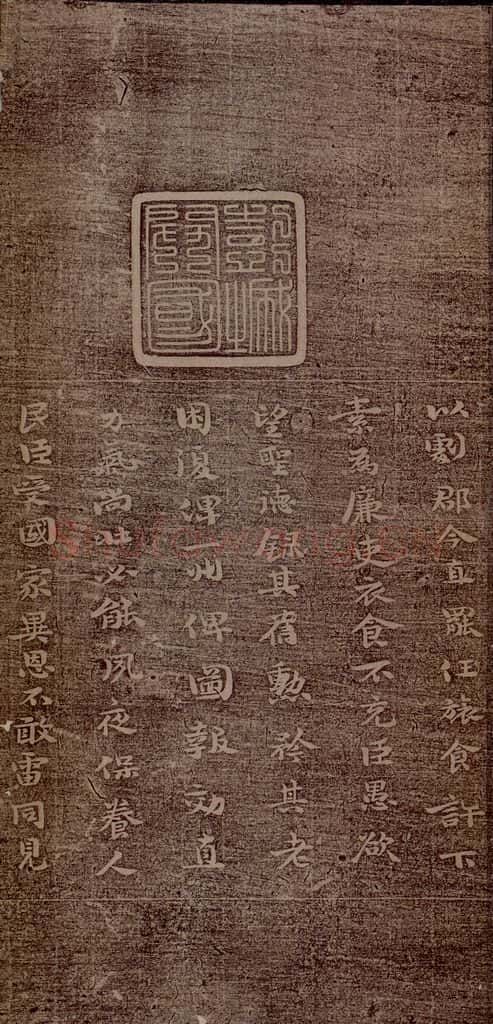 彭城
開國
以劇郡今直罷任旅食許下
素為廉吏衣食不充臣愚欲
望聖德録其舊勳矜其老
困復俾一州俾圖報効直
力氣尚壯必能夙夜保養人
民臣受國家異恩不敢雷同見